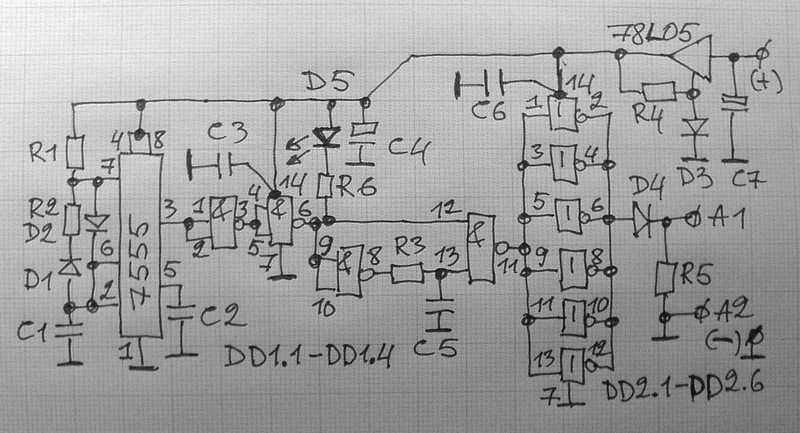 78L05
D5
C6
14
1
2
R4
(+)
D3
C7
R1
4
8
C3
C4
7
4
14
R6
3
4
R2
D2
7555
3
1
2
&
3
5
&
6
12
&
5
6
D4
A1
D1
6
5
7
9
10
&
8
R3
13
11
9
8
R5
2
C1
C2
C5
11
10
A2
(-)
1
DD1.1-DD1.4
13
12
7
DD2.1-DD2.6
1
1
1
1
1
1